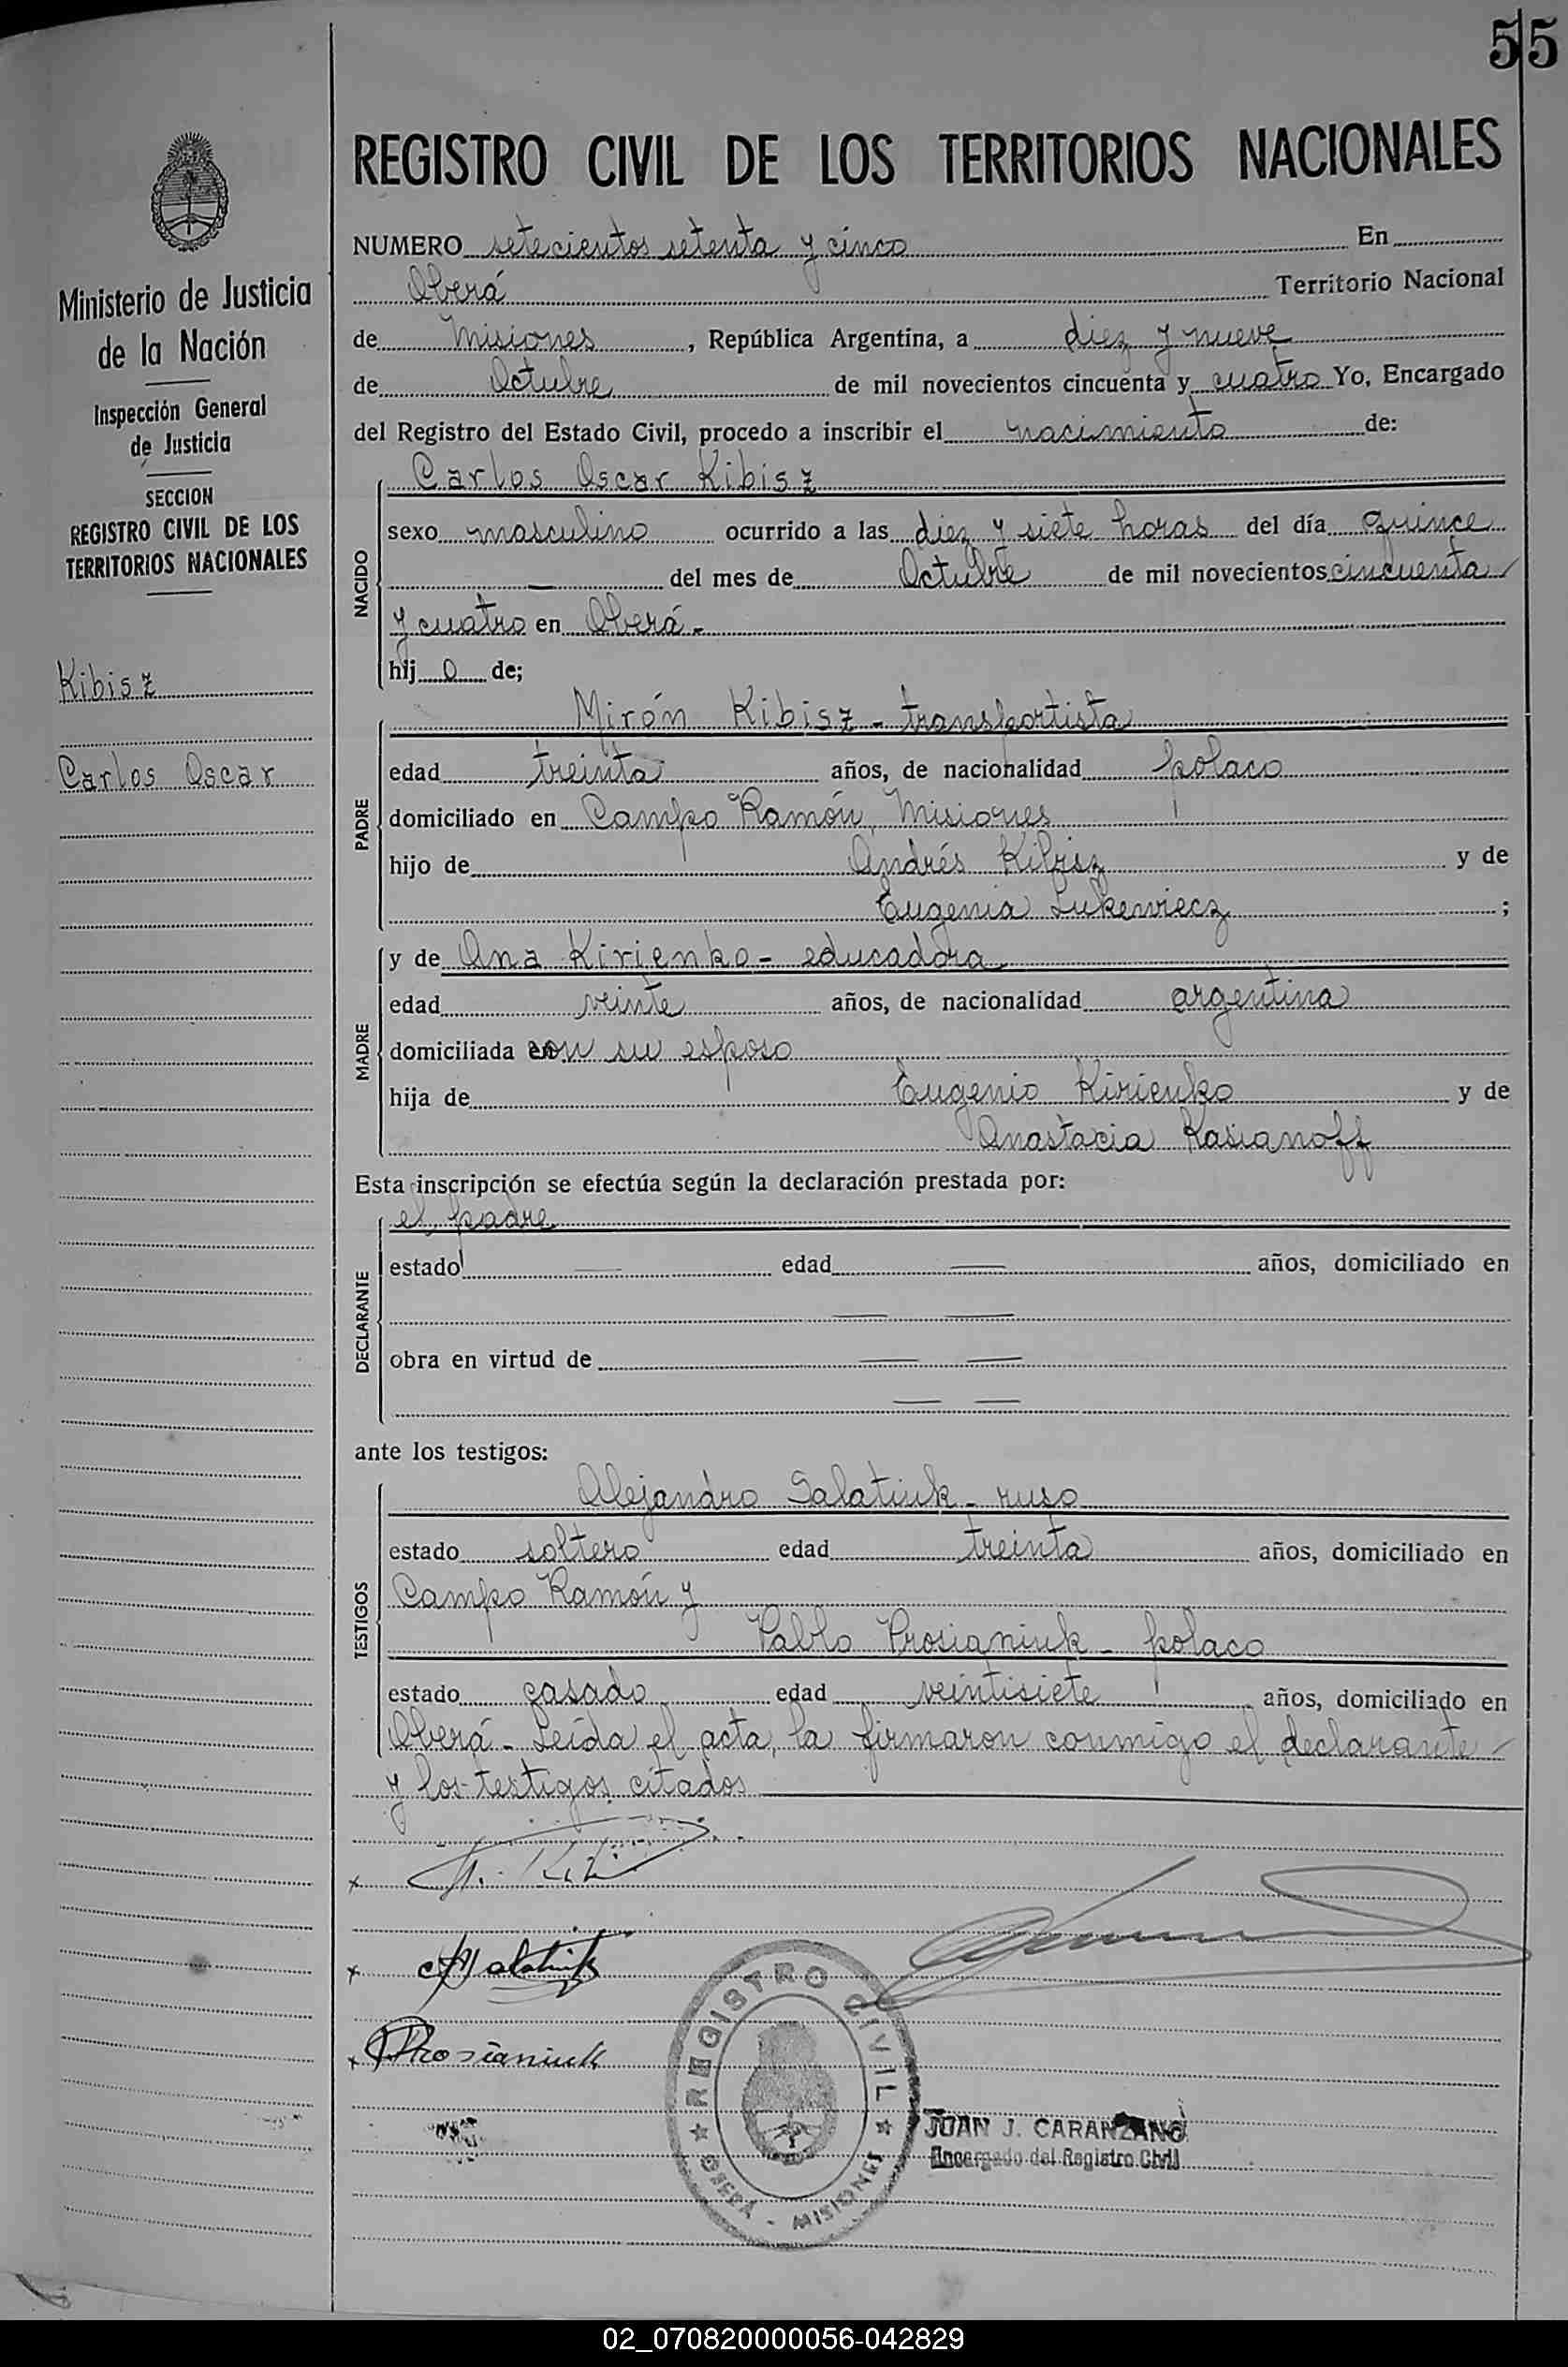 55
REGISTRO CIVIL DE LOS TERRITORIOS NACIONALES
Ministerio de Justicia
de la Nación
Inspección General
de Justicia
SECCION
REGISTRO CIVIL DE LOS
TERRITORIOS NACIONALES
Kibisz
Carlos Oscar
NUMERO setecientos setenta y cinco En
Oberá Territorio Nacional
de Misiones, República Argentina, a diez y nueve
de Octubre de mil novecientos cincuenta y cuatro Yo, Encargado
del Registro del Estado Civil, procedo a inscribir el nacimiento de:
NACIDO
Carlos Oscar Kibisz
sexo masculino ocurrido a las diez y siete horas del día quince
— del mes de Octubre de mil novecientos cincuenta
y cuatro en Oberá.-
hijo de;
PADRE
Mirón Kibisz - transportista
edad treinta años, de nacionalidad polaco
domiciliado en Campo Ramón, Misiones
hijo de Andrés Kibisz y de
Eugenia Lukewiecz;
MADRE
y de Ana Kirienko - educadora
edad veinte años, de nacionalidad argentina
domiciliada con su esposo
hija de Eugenio Kirienko y de
Anastacia Kasianoff
Esta inscripción se efectúa según la declaración prestada por:
DECLARANTE
el padre
estado — edad — años, domiciliado en
— —
obra en virtud de — —
— —
ante los testigos:
TESTIGOS
Alejandro Salatiuk - ruso
estado soltero edad treinta años, domiciliado en
Campo Ramón y
Pablo Prosianiuk - polaco
estado casado edad veintisiete años, domiciliado en
Oberá - Leída el acta, la firmaron conmigo el declarante
y los testigos citados
Prosianiuk
REGISTRO CIVIL
OBERÁ - MISIONES
JUAN J. CARANZANO
Encargado del Registro Civil
02_070820000056-042829